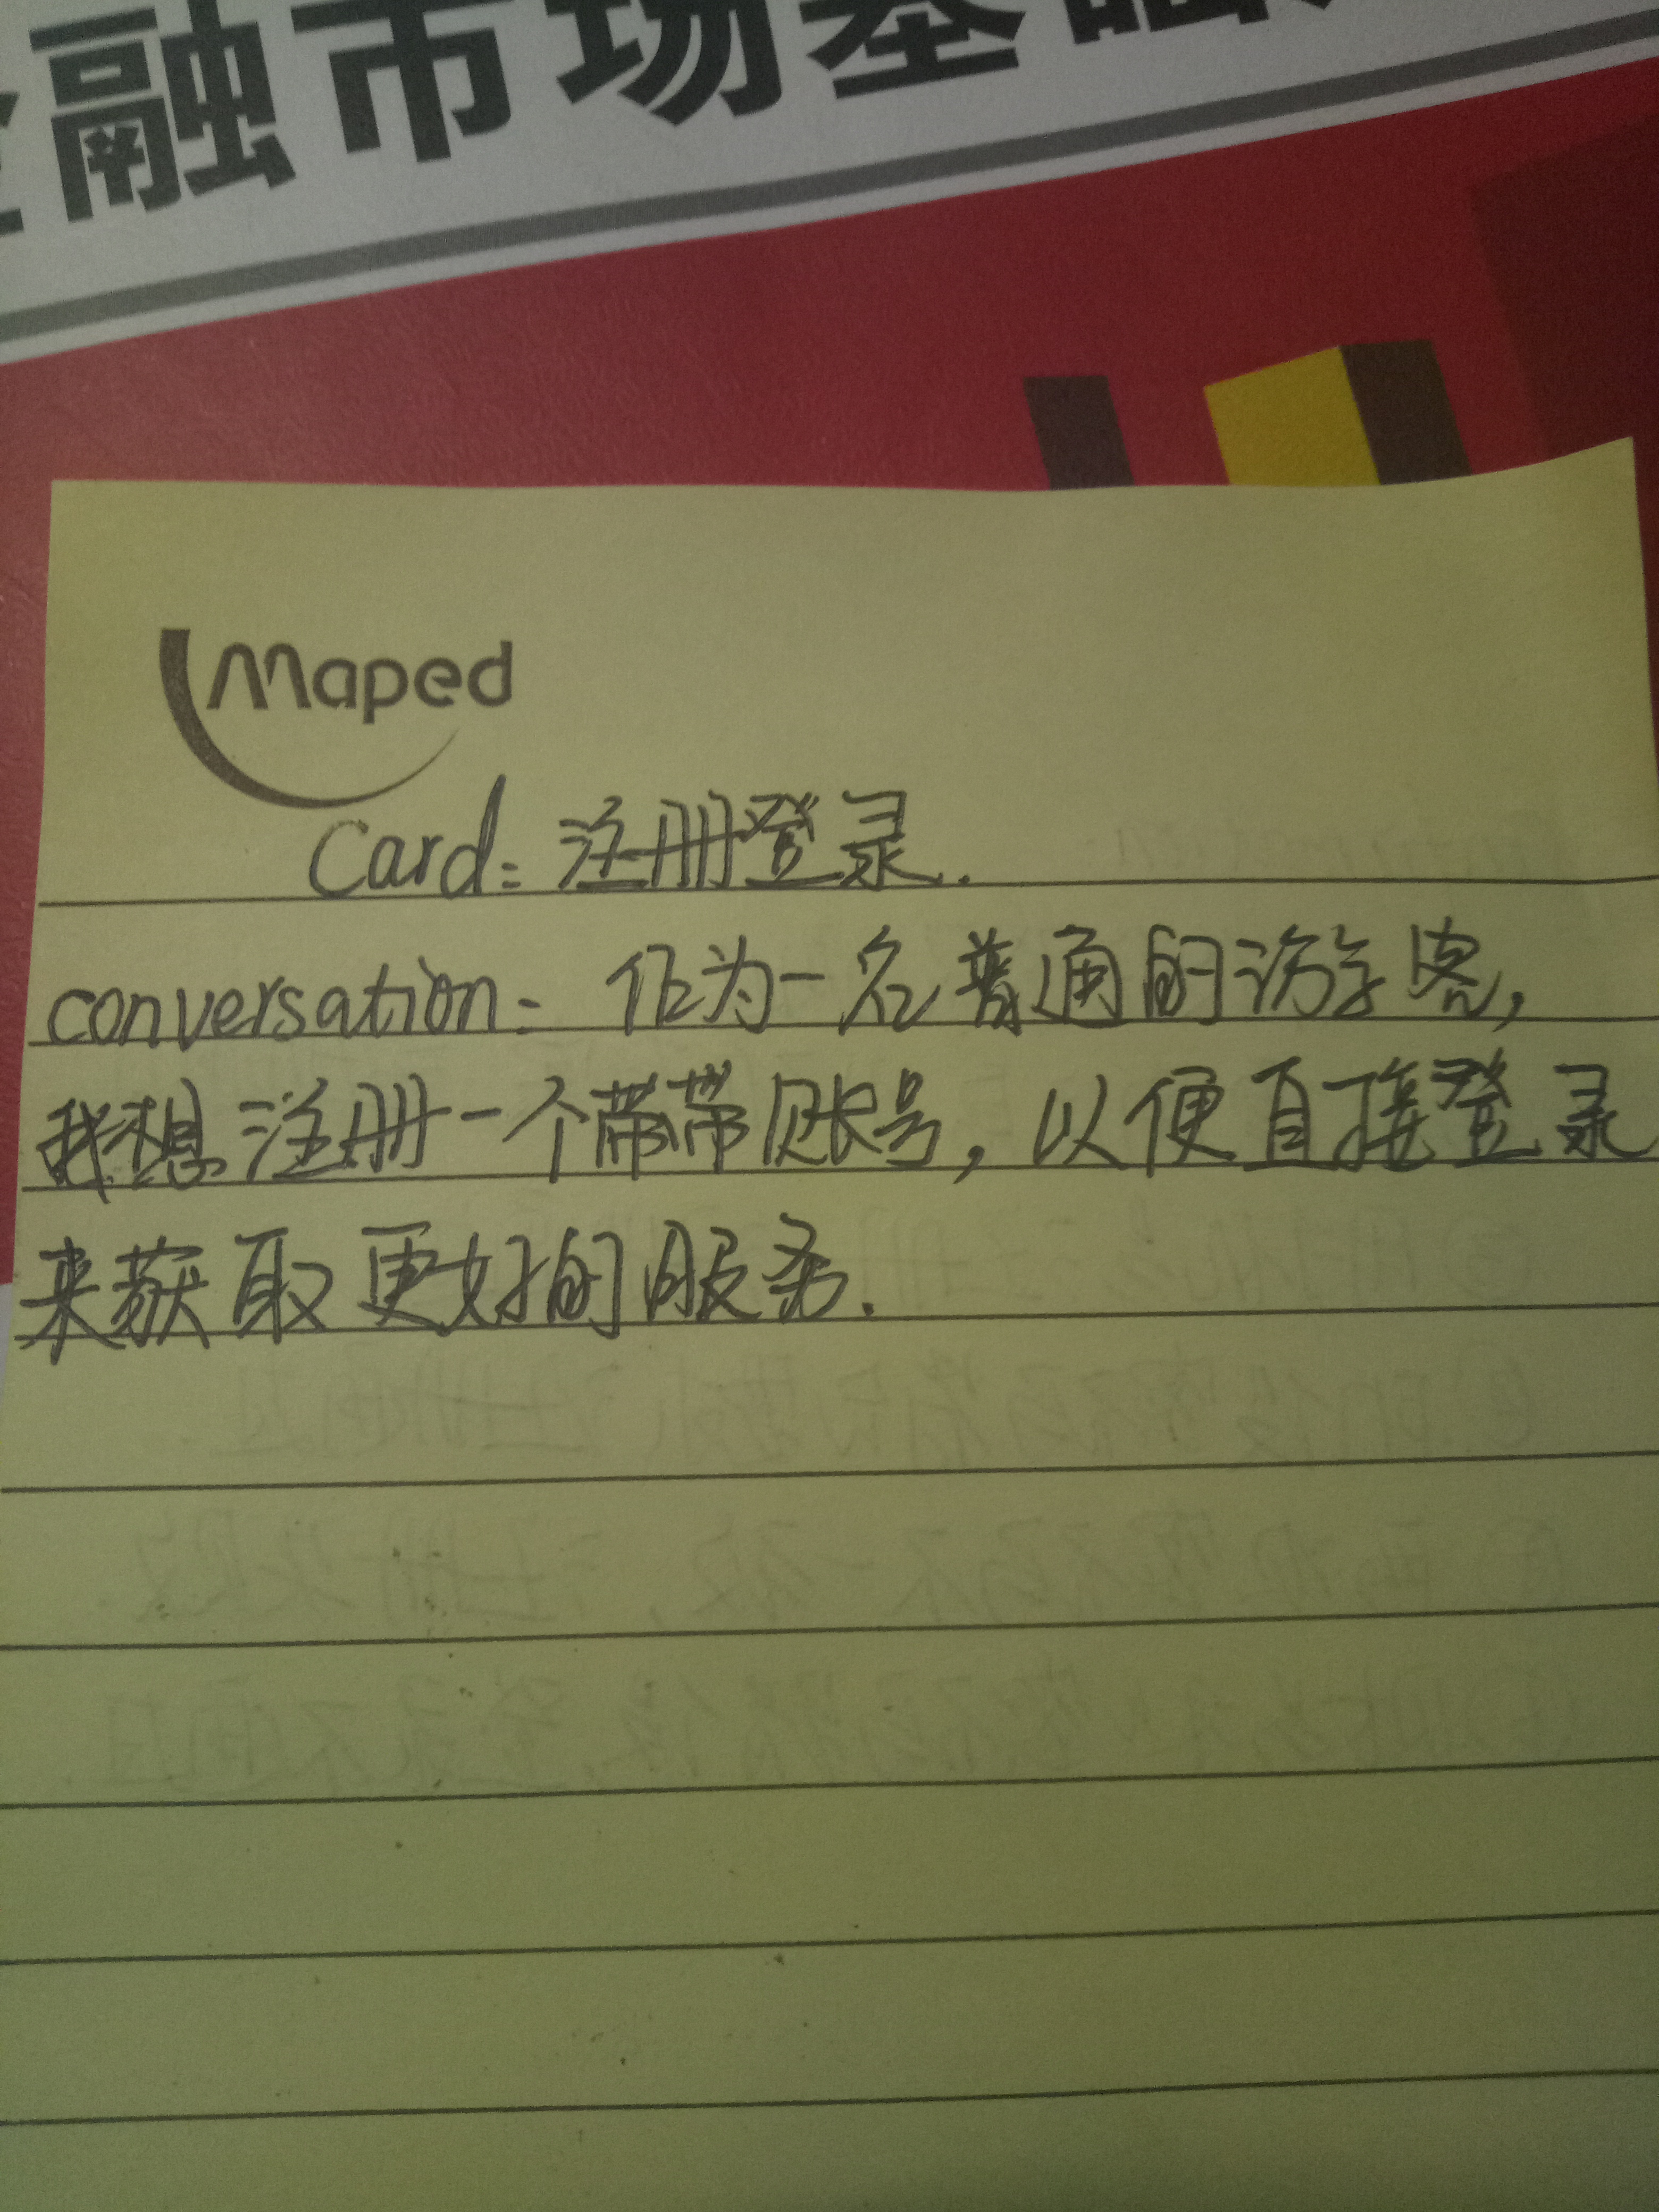 融市场基
Maped
Card: 注册登录.
conversation: 作为一名普通的访客,
我想注册一个带带账号, 以便直接登录
来获取更好的服务.